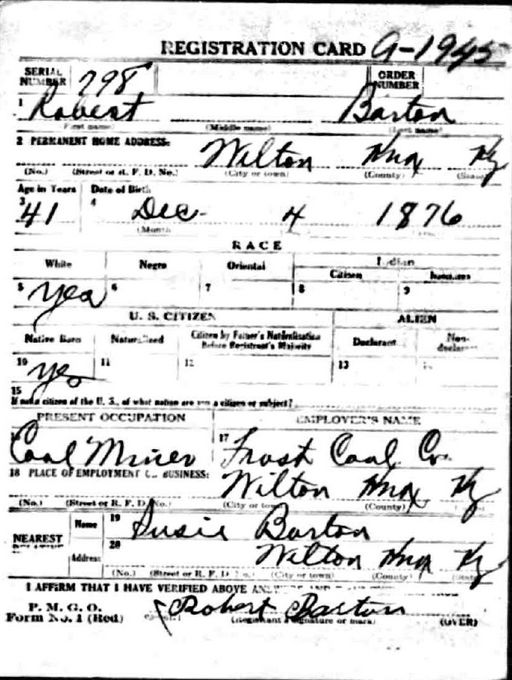 REGISTRATION CARD A-1945
SERIAL NUMBER 798 ORDER NUMBER
1 Robert Barton
(First name) (Middle name) (Last name)
2 PERMANENT HOME ADDRESS: Wilton Knx Ky
(No.) (Street or R. F. D. No.) (City or town) (County) (State)
Age in Years Date of Birth
3 41 4 Dec 4 1876
(Month
RACE
White Negro Oriental Indian
Citizen
5 Yes 6 7 8 9
U. S. CITIZEN ALIEN
Native Born Naturalized Citizen by Father's Naturalization Before Registrant's Majority Declarant Non-declarant
10 Yes 11 12 13
15
If not a citizen of the U. S., of what nation are you a citizen or subject?
PRESENT OCCUPATION EMPLOYER'S NAME
Coal Miner 17 Frost Coal Co.
18 PLACE OF EMPLOYMENT BUSINESS: Wilton Knx Ky
(No.) (Street or R. F. D. No.) (City or town) (County)
NEAREST RELATIVE Name 19 Susie Barton
Address 20 Wilton Knx Ky
(No.) (Street or R. F. D. No.) (City or town) (County) (State)
I AFFIRM THAT I HAVE VERIFIED ABOVE
P. M. G. O.
Form No. 1 (Red) Robert Barton
(Registrant signature or mark) (OVER)